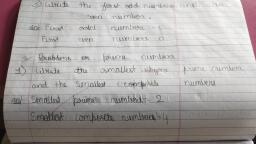 3) Write the first odd number and the
even number.
Sol First odd number = 1
First even number =
Problems on prime numbers
1) Write the smallest prime number
and the smallest composite number
Sol Smallest prime number = 2
Smallest composite number = 4